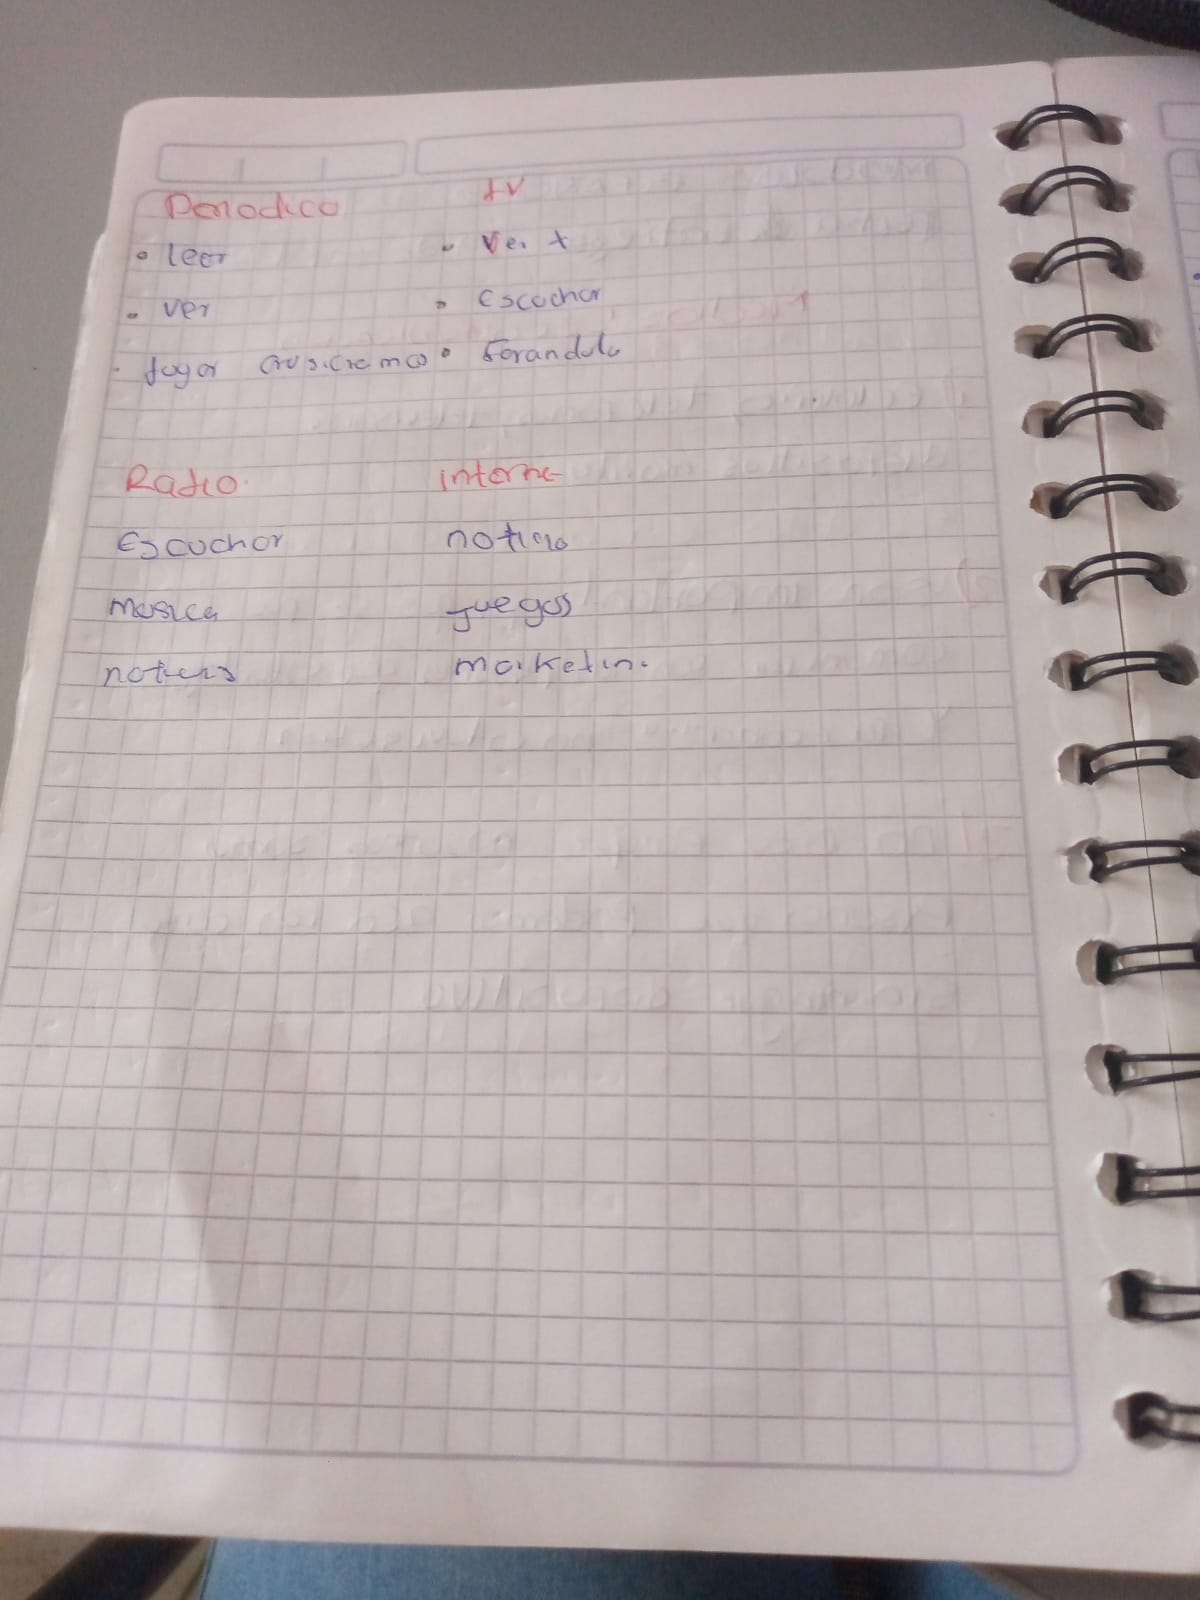 Periodico
tv
• leer
• Ver +
• ver
• Escuchar
• Jugar
• Farandula
Radio.
interne
Escuchar
juegos
musica
marketin.